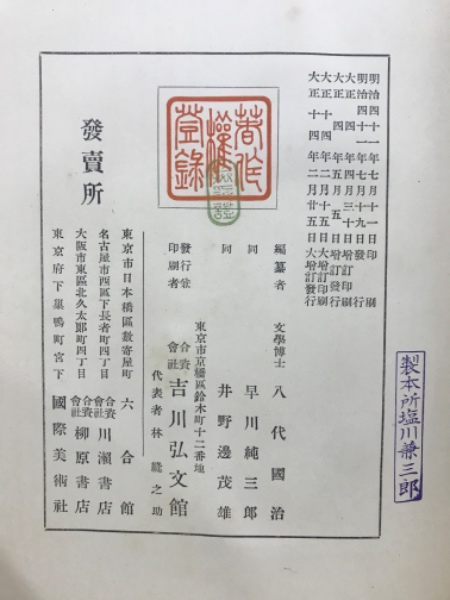 明治四十一年七月十一日印刷
明治四十一年七月十九日發行
大正四年四月三十日增訂印刷
大正四年五月五日增訂發行
大正十四年二月十五日大增訂印刷
大正十四年二月廿五日大增訂發行
著作
權
登錄
編纂者 文學博士 八代國治
同 早川純三郎
同 井野邊茂雄
東京市京橋區鈴木町十二番地
發行兼印刷者 合資會社 吉川弘文館
代表者 林 之助
發賣所
東京市日本橋區數寄屋町 六合館
名古屋市西區下長者町四丁目 合資會社 川瀨書店
大阪市東區北久太郞町四丁目 合資會社 柳原書店
東京府下巢鴨町宮下 國際美術社
製本所塩川兼三郎